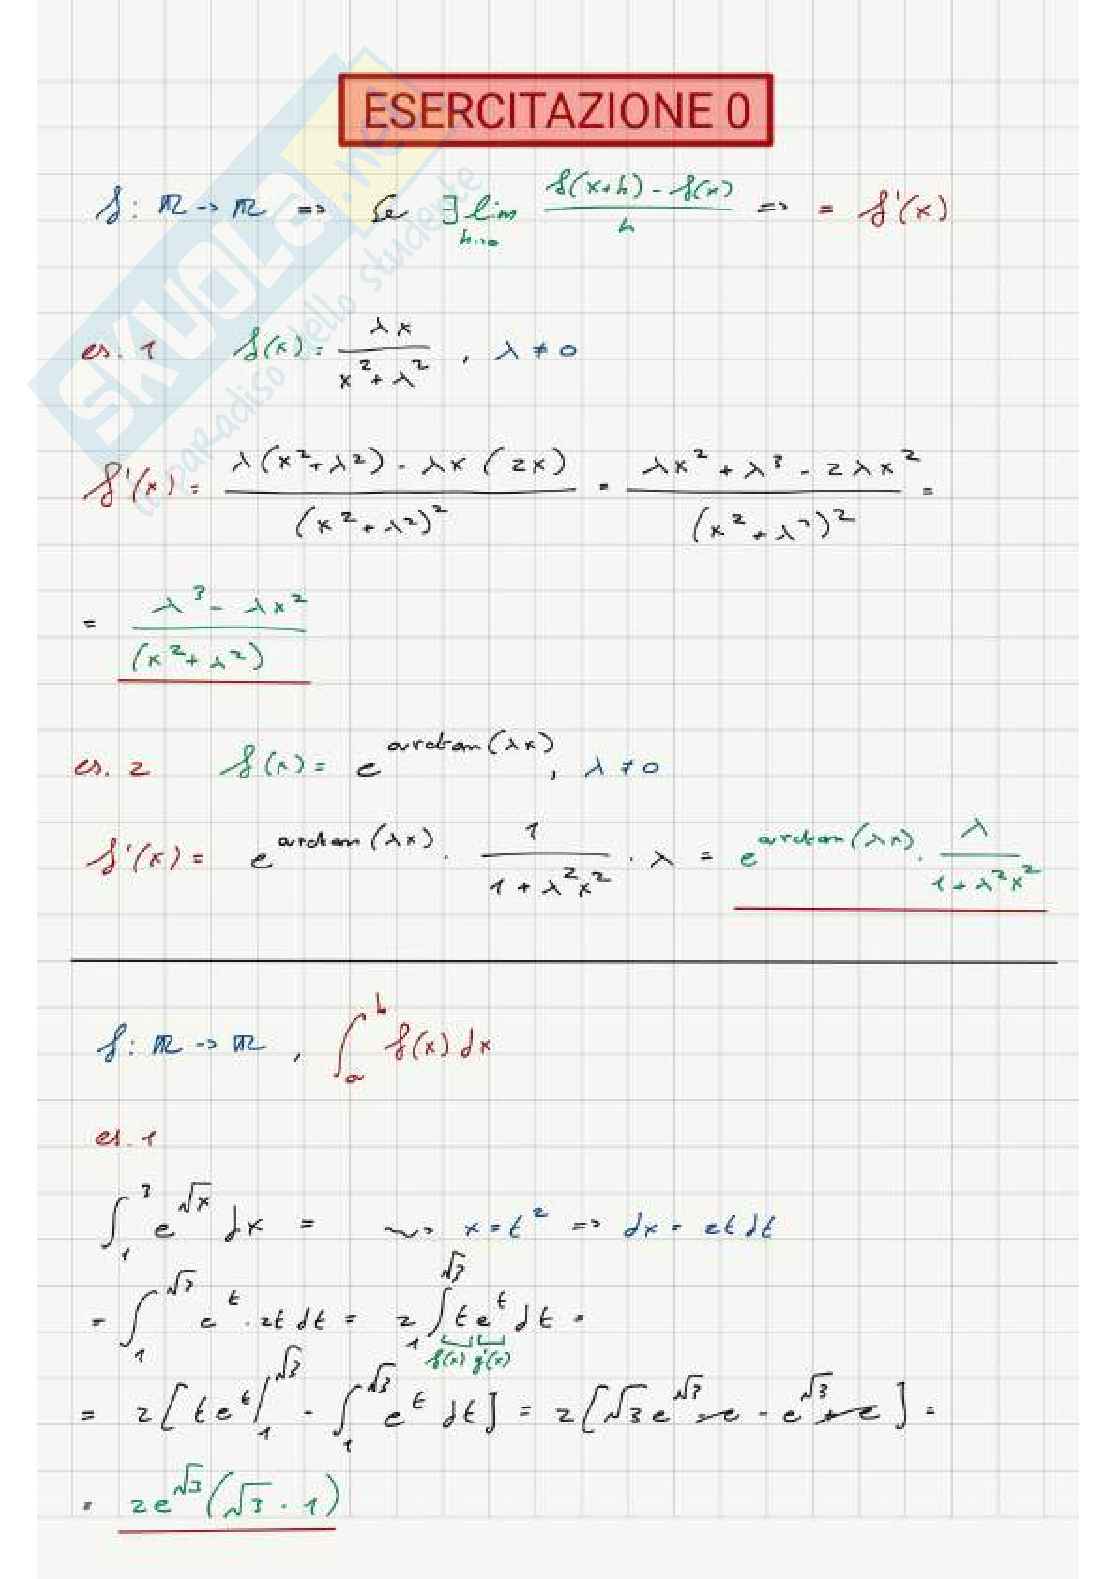 ESERCITAZIONE 0
f: ℝ → ℝ => Se ∃ lim_{h→0} (f(x+h) - f(x))/h => = f'(x)
es. 1 f(x) = λx/(x²+λ²) , λ ≠ 0
f'(x) = (λ(x²+λ²) - λx (2x))/(x²+λ²)² = (λx² + λ³ - 2λx²)/(x²+λ²)² =
= (λ³ - λx²)/(x²+λ²)
es. 2 f(x) = e^{arctan(λx)} , λ ≠ 0
f'(x) = e^{arctan(λx)} · 1/(1+λ²x²) · λ = e^{arctan(λx)} · λ/(1+λ²x²)
f: ℝ → ℝ , ∫_a^b f(x) dx
es. 1
∫_1^3 e^{√x} dx = ⇝ x = t² => dx = 2t dt
= ∫_1^{√3} e^t · 2t dt = 2 ∫_1^{√3} t e^t dt =
f(x) g'(x)
= 2 [ t e^t |_1^{√3} - ∫_1^{√3} e^t dt ] = 2 [ √3 e^{√3} - e - e^{√3} + e ] =
= 2e^{√3} (√3 - 1)
SKUOLA.net
il paradiso dello studente